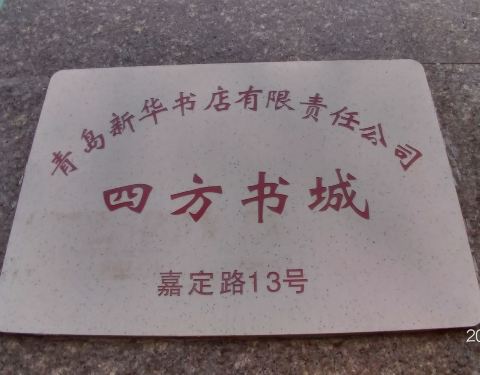 青岛新华书店有限责任公司
四方书城
嘉定路13号
20